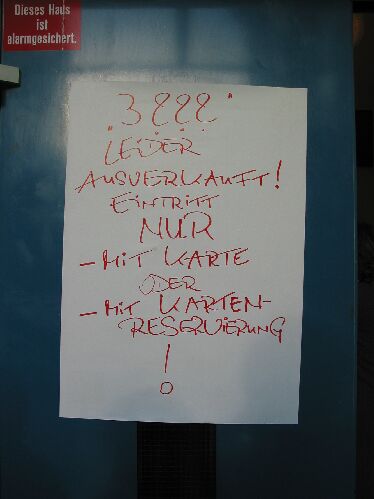 Dieses Haus
ist
alarmgesichert.
3???
LEIDER
AUSVERKAUFT!
EINTRITT
NUR
- MIT KARTE
ODER
- MIT KARTEN-
RESERVIERUNG
!